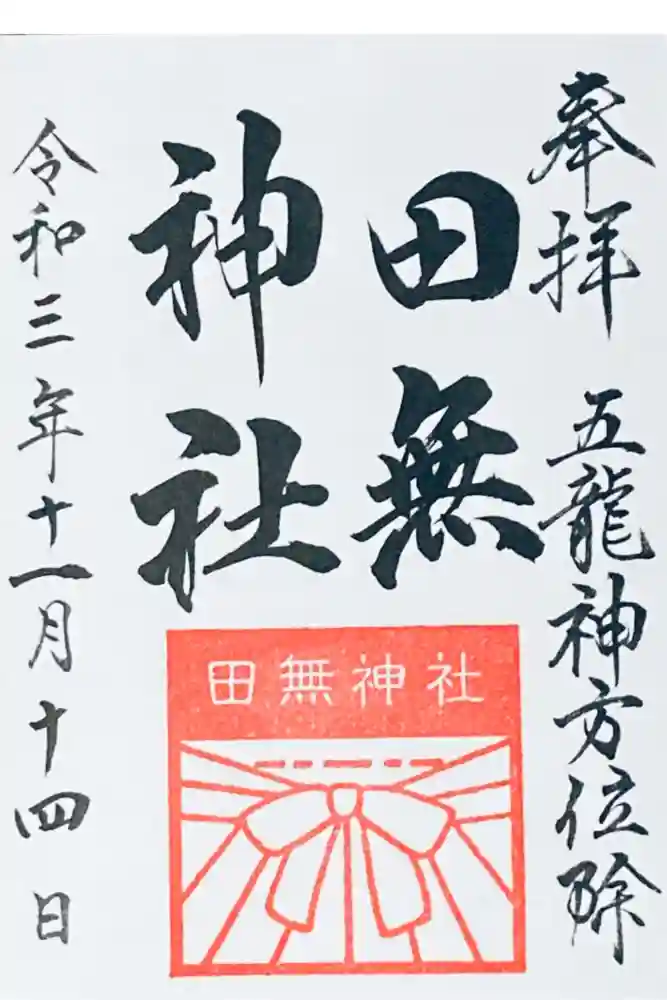 奉拝 五龍神方位除
田無
神社
田無神社
令和三年十一月十四日